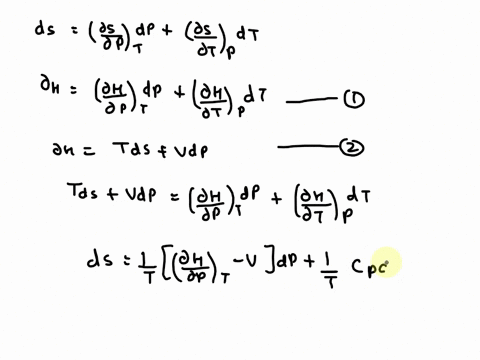 ds = (∂s/∂P)_T dP + (∂s/∂T)_P dT
∂H = (∂H/∂P)_T dP + (∂H/∂T)_P dT —— ①
∂H = Tds + VdP —— ②
Tds + VdP = (∂H/∂P)_T dP + (∂H/∂T)_P dT
ds = 1/T [(∂H/∂P)_T - V] dP + 1/T C_P d